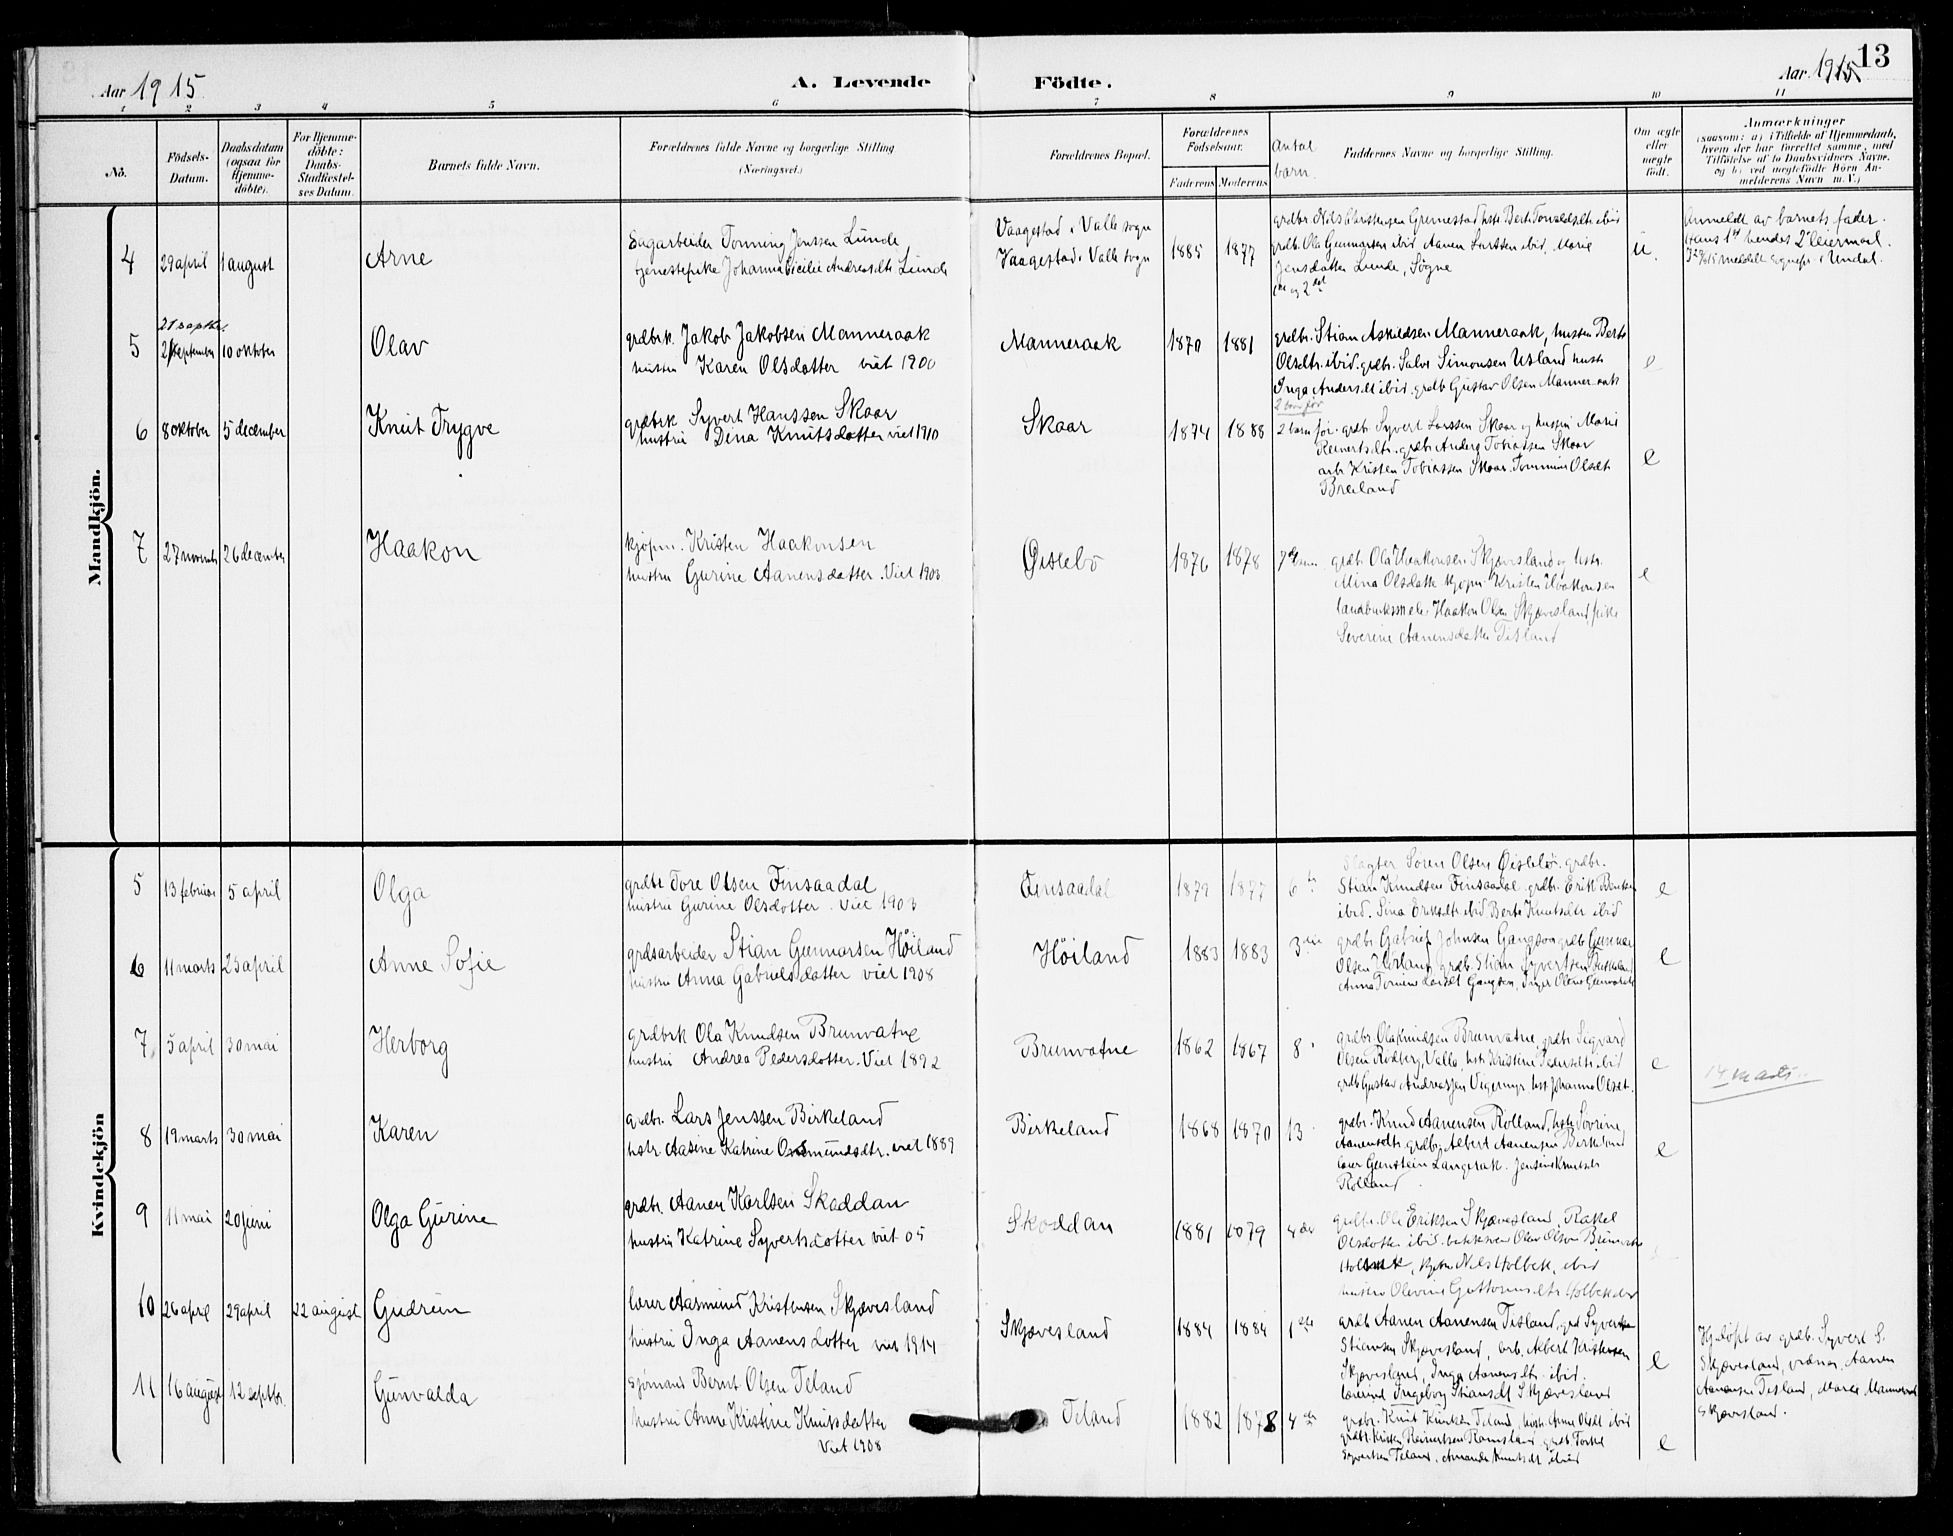 Aar 1915
A. Levende
Födte.
Aar 1915
13
1 2 3 4 5 6 7 8 9 10 11
No.
Födsels-Datum.
Daabsdatum (ogsaa for Hjemme-döbte).
For Hjemme-döbte: Daabs-Stadfæstel-ses Datum.
Barnets fulde Navn.
Forældrenes fulde Navne og borgerlige Stilling
(Næringsvei.)
Forældrenes Bopæl.
Forældrenes Fødselsaar.
Faderens
Moderens
Antal barn.
Faddernes Navne og borgerlige Stilling.
Om ægte eller uægte födt.
Anmærkninger
(saasom: a) i Tilfælde af Hjemmedaab, hvem der har forrettet samme, med Tilföielse af to Daabsvidners Navne, og b) ved uægtefödte Börn Anmelderens Navn m. V.)
Mandkjön.
4 29 april 1 august Arne
Sagarbeider Tonning Jenssen Lunde
tjenestepike Johanna Cicilie Andreasdtr Lunde
Vaagestad i Valle sogn
Vaagestad i Valle sogn
1885 1877
grdbr Nils Christensen Grennestad hstr Berte Tonvaldsdtr ibid
grdb. Ola Gunnarsen ibid, Aanen Larssen ibid, Marie
Jensdatter Lunde, Søgne
u.
Anmeldt av barnets fader.
Hans 1st hendes 2d leiermaal.
meldelt sognepr. i Undal.
21 septbr.
5 21 september 10 oktober Olav
grdbrk. Jakob Jakobsen Manneraak
hustru Karen Olsdatter viet 1900
Manneraak 1870 1881
grdbr. Stian Askildsen Manneraak, hustru Berte
Olsdtr. ibid. grdbr. Salve Simonsen Usland hustr.
Inga Andersdt ibid. grdb Gustav Olsen Manneraak
e
2 barn før
6 8 oktober 5 december Knut Trygve
grdbrk Syvert Hanssen Skaar
hustru Dina Knutsdatter viet 1910
Skaar 1874 1888
2 barn før. grdb. Syvert Larssen Skaar og hustru Marie
Reinertsdtr. grdb. Anders Tobiassen Skaar
arb. Kristen Tobiassen Skaar. Tomine Olsdt.
Breiland
e
7 27 novemb 26 december Haakon
kjøpm. Kristen Haakonsen
hustru Gurine Aanensdatter. Viet 1903
Øislebø 1876 1878 7de barn
grdb. Ola Haakonsen Skjævesland og hstr.
Mina Olsdatter kjøpm. Kristen Haakonsen
Haakon Olsen Skjævesland, pike
Severine Aanensdatter Tisland
e
Kvindekjön
5 13 februar 5 april Olga
grdbr Tore Olsen Finsaadal
hustru Gurine Olsdatter. Viet 1903
Finsaadal 1877 6te
Slagter Søren Olsen Øislebø. grdbr.
Stian Knudsen Finsaadal grdbr. Erik Bentsen
ibid. Sina Eriksdtr ibid Berte Knutsdtr ibid
e
6 11 marts 23 april Anne Sofie
grdsarbeider Stian Gunnarsen Höiland
hustru Anna Gabrielsdatter viet 1908
Höiland 1883 1883 3die
grdbr. Gabriel Johnsen Gangsaa grdb Gunnar
Olsen grdb. Stian Syvertsen
e
7. 5 april 30 mai Herborg
grdbrk Ola Knudsen Brunvatne
hustru Andrea Pedersdatter. Viet 1892
Brunvatne 1862 1867 8
grdbr. Ola Knudsen Brunvatne, grdb Sigvard
Olsen Rødberg, Valle, hstr Kristine Pedersdtr ibid
grdb Gustav Andreassen Vigermyr hst Johanne Olsdt.
e
14 marts
8 19 marts 30 mai Karen
grdbr. Lars Jenssen Birkeland
hstr. Aasine Katrine Osmundsdtr. viet 1889
Birkeland 1868 1870 13
grdbr. Knud Aanensen Rolland, hstr Sovrine
Aanensdtr. grdbr. Albert Aanensen Birkeland
lærer Gunstein Langerak. Jensine Knutsdt
Rolland.
e
9 11 mai 20 juni Olga Gurine
grdbr. Aanen Karlsen Skoddan
hustru Katrine Syvertsdatter viet 05
Skoddan 1881 1879 4de
grdbr. Ole Eriksen Skjævesland, Rakel
Olsdatter ibid. Olav Olsen
Nils Holbek, ibid
hustru Olevine Guttormsdtr Holbek
10 26 april 29 april 22 august Gudrun
lærer Aasmund Kristensen Skjævesland
hustru Inga Aanensdotter viet 1914
Skjævesland 1884 1884 1ste
grdb Aanen Aanensen Tisland, grd Syvert
Stiansen Skjævesland, arb. Albert Kristensen
Skjævesland, Inga Aanensdtr. ibid.
Ingeborg Stiansdt Skjævesland
e
Hj. döpt av grdb. Syvert S.
Skjævesland, vidner Aanen
Aanensen Tisland, Maren
Skjævesland.
11 16 august 12 septbr. Gunvalda
sjømand Bernt Olsen Teland
hustru Anne Kristine Knutsdatter
Viet 1908
Teland 1882 1878 4de
grdbr. Knut Knutsen Teland, hstr. Anne Olsdt ibid
grdb. Kristen Reinertsen Ramsland, grdb Torkel
Syvertsen Teland, Amanda Knutsdt ibid
e